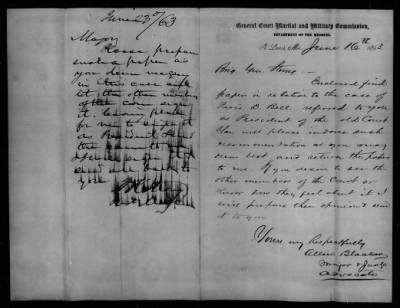 June 23rd/63
Major
Please prepare
such a paper as
you deem necessary
in this case and
let the other members
of the Com. sign
it. leaving place
for me to sign it
as President
the
and
you
General Court Martial and Military Commission,
DEPARTMENT OF THE MISSOURI.
St. Louis, Mo. June 16th 1863
Brig. Gen. Strong
Enclosed find
paper in relation to the case of
D. Bell, referred to you
as President of the old Court
You will please endorse such
recommendation as you may
deem best, and return the papers
to me. If you desire to see the
other members of the Court or
know how they feel about it I
will prepare their opinion & send
it to you
Yours very Respectfully
Major & Judge
Advocate